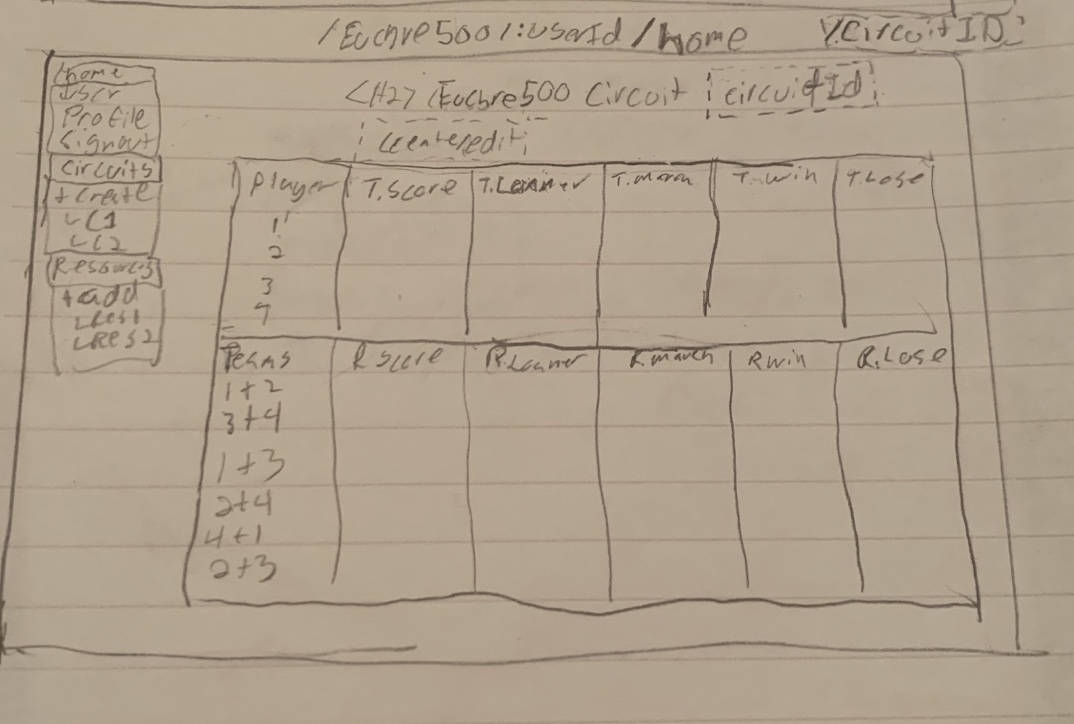 /Euchre500/:userId/home /:CircuitID:
/home
User
Profile
Signout
Circuits
+ Create
↳ C1
↳ C2
Resources
+ add
↳ Res1
↳ Res2
<H2> /Euchre500 Circuit circuitId
create/edit
Player T.Score T.Loaner T.march T.win T.Lose
1
2
3
4
Teams R.Score R.Loaner R.march R.win R.Lose
1+2
3+4
1+3
2+4
4+1
2+3